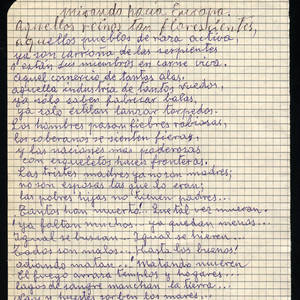 mirando hacia Europa.
Aquellos reinos tan florescientes,
aquellos pueblos de rara activa
ya son carroña de las serpientes
y están sus miembros en carne viva.
Aquel comercio de tantas alas,
aquella industria de tantos vuedos,
ya solo saben fabricar balas,
ya solo estilan lanzar torpedos.
Los hombres pasan fiebres rabiosas,
los soberanos se sienten fieras,
y las naciones mas poderosas
con esqueletos hacen fronteras.
Las tristes madres ya no son madres;
no son esposas las que lo eran;
las pobres hijas no tienen padres...
¡Tantos han muerto! ¡Y tal vez mueran.
¡Ya faltan muchos... ya quedan menos...
¡Igual se buscan... Igual se hieren
¡Todos son malos... ¡hasta los buenos!
odiando matan! Matando mueren
El fuego arrasa templos y hogares...
lagos de sangre manchan la tierra...
sorben los mares...